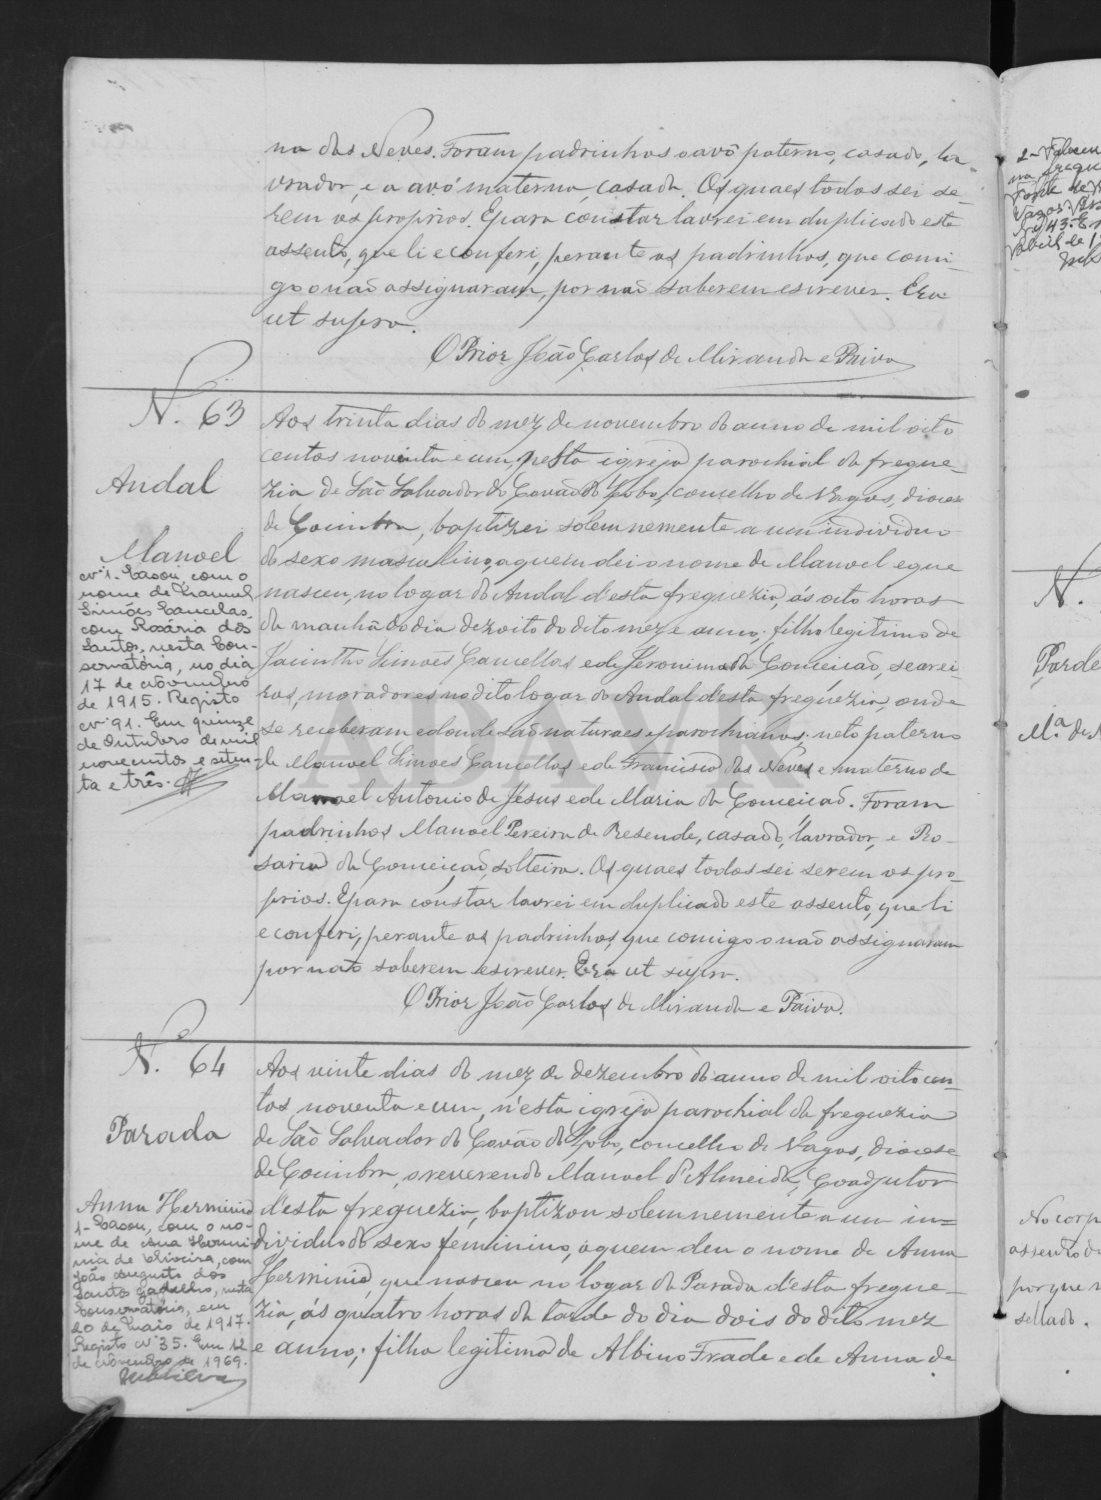 na das Neves. Foram padrinhos o avô paterno, casado, la-
vrador, e a avó materna, casada. Os quaes todos sei se-
rem os proprios. E para constar lavrei em duplicado este
assento, que li e conferi, perante os padrinhos, que comi-
go o não assignaram, por não saberem escrever. Era
ut supra.
O Prior João Carlos de Miranda e Paiva
N.º 63
Andal
Manoel
Nº 1. Casou, com o
nome de Manuel
Simões Cancelas,
com Rosária dos
Santos, nesta Con-
servatória, no dia
17 de Novembro
de 1915. Registo
Nº 91. Em quinze
de Outubro de mil
novecentos e seten-
ta e três.
Aos trinta dias do mez de novembro do anno de mil oito
centos noventa e um, nesta igreja parochial da fregue-
zia de São Salvador do Covão do Lobo, concelho de Vagos, diocese
de Coimbra, baptizei solemnemente a um individuo
do sexo masculino, a quem dei o nome de Manoel e que
nasceu, no logar do Andal d'esta freguezia, ás oito horas
da manhã do dia dezoito do dito mez e anno; filho legitimo de
Jacintho Simões Cancellas e de Jeronima da Conceição, seareiros
ros, moradores no dito logar do Andal d'esta freguezia, onde
se receberam e donde são naturaes e parochianos: neto paterno
de Manoel Simoes Cancellas e de Francisca das Neves e materno de
Manoel Antonio de Jesus e de Maria da Conceição. Foram
padrinhos Manoel Pereira de Resende, casado, lavrador, e Ro-
saria da Conceição, solteira. Os quaes todos sei serem os pro-
prios. E para constar lavrei em duplicado este assento, que li
e conferi, perante os padrinhos, que comigo o não assignaram
por não saberem escrever. Era ut supra.
O Prior João Carlos de Miranda e Paiva.
N.º 64
Parada
Anna Herminia
1- Casou, com o no-
me de Ana Hermi-
nia de Oliveira, com
João Augusto dos
Santos, nesta
Conservatória, em
20 de Maio de 1917.
Registo Nº 35. Em 12
de Novembro de 1969.
Aos vinte dias do mez de dezembro do anno de mil oitocen-
tos noventa e um, n'esta igreja parochial da freguezia
de São Salvador do Covão do Lobo, concelho de Vagos, diocese
de Coimbra, o reverendo Manoel d'Almeida, Coadjutor
d'esta freguezia, baptizou solemnemente a um in=
dividuo do sexo feminino, a quem deu o nome de Anna
Herminia, que nasceu no logar da Parada d'esta fregue-
zia, ás quatro horas da tarde do dia dois do dito mez
e anno; filha legitima de Albino Frade e de Anna de
N.
Parda
Mª de
No corp
assento d
porque
sellado.
ADAVR